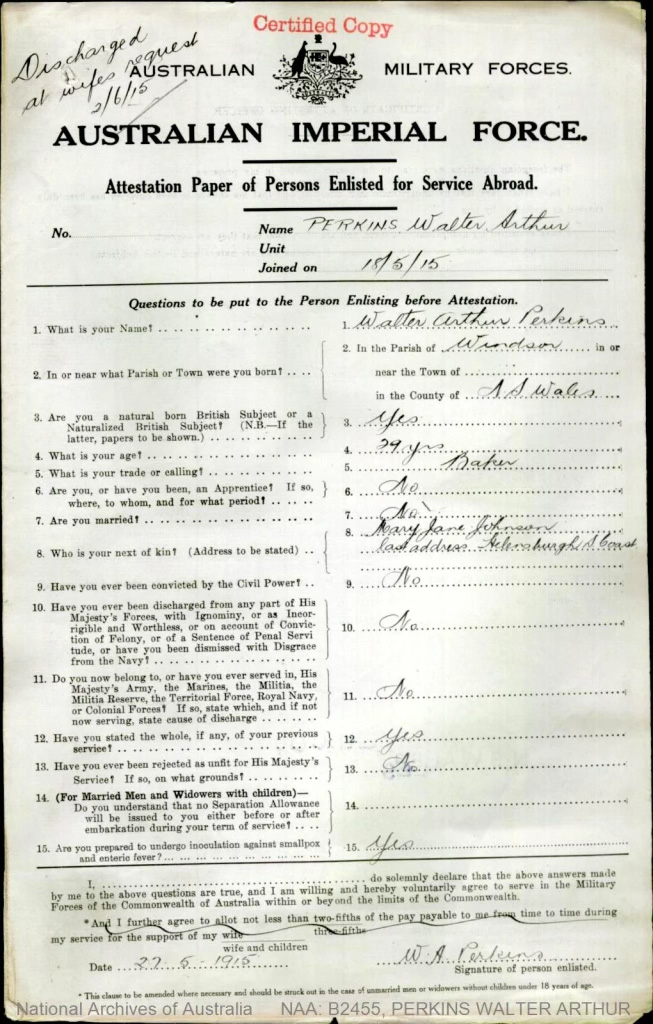 Certified Copy
Discharged
at wifes request
2/6/15
AUSTRALIAN MILITARY FORCES.
AUSTRALIAN IMPERIAL FORCE.
Attestation Paper of Persons Enlisted for Service Abroad.
No. Name PERKINS Walter Arthur
Unit
Joined on 18/5/15
Questions to be put to the Person Enlisting before Attestation.
1. What is your Name? 1. Walter Arthur Perkins
2. In or near what Parish or Town were you born? 2. In the Parish of Windsor in or
near the Town of
in the County of N S Wales
3. Are you a natural born British Subject or a
Naturalized British Subject? (N.B.—If the
latter, papers to be shown.) 3. Yes
4. What is your age? 4. 29 yrs
5. What is your trade or calling? 5. Baker
6. Are you, or have you been, an Apprentice? If so,
where, to whom, and for what period? 6. No
7. Are you married? 7. No
8. Who is your next of kin? (Address to be stated) 8. Mary Jane Johnson
last address Helensburgh S Coast
9. Have you ever been convicted by the Civil Power? 9. No
10. Have you ever been discharged from any part of His
Majesty's Forces, with Ignominy, or as Incor-
rigible and Worthless, or on account of Convic-
tion of Felony, or of a Sentence of Penal Servi
tude, or have you been dismissed with Disgrace
from the Navy? 10. No
11. Do you now belong to, or have you ever served in, His
Majesty's Army, the Marines, the Militia, the
Militia Reserve, the Territorial Force, Royal Navy,
or Colonial Forces? If so, state which, and if not
now serving, state cause of discharge 11. No
12. Have you stated the whole, if any, of your previous
service? 12. Yes
13. Have you ever been rejected as unfit for His Majesty's
Service? If so, on what grounds? 13. No
14. (For Married Men and Widowers with children)—
Do you understand that no Separation Allowance
will be issued to you either before or after
embarkation during your term of service? 14.
15. Are you prepared to undergo inoculation against smallpox
and enteric fever? 15. Yes
I, do solemnly declare that the above answers made
by me to the above questions are true, and I am willing and hereby voluntarily agree to serve in the Military
Forces of the Commonwealth of Australia within or beyond the limits of the Commonwealth.
*And I further agree to allot not less than two-fifths of the pay payable to me from time to time during
three-fifths
my service for the support of my wife
wife and children
Date 27.5-1915 W. A. Perkins
Signature of person enlisted.
* This clause to be amended where necessary and should be struck out in the case of unmarried men or widowers without children under 18 years of age.
National Archives of Australia NAA: B2455, PERKINS WALTER ARTHUR